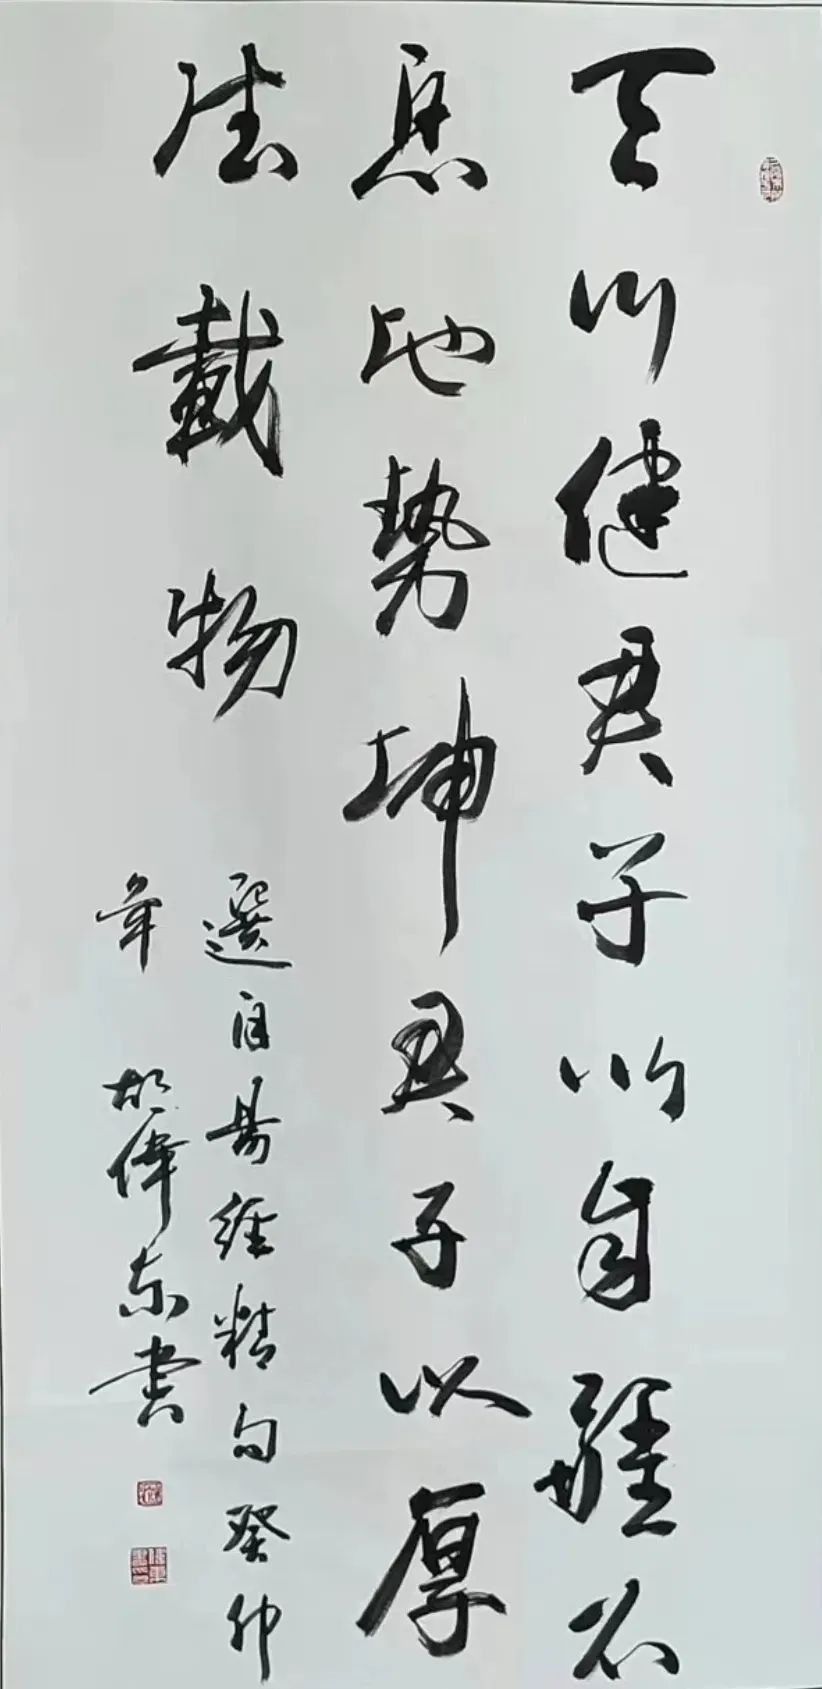 天行健君子以自强不
息地势坤君子以厚
德載物
選自易经精句癸卯
年 胡偉东书